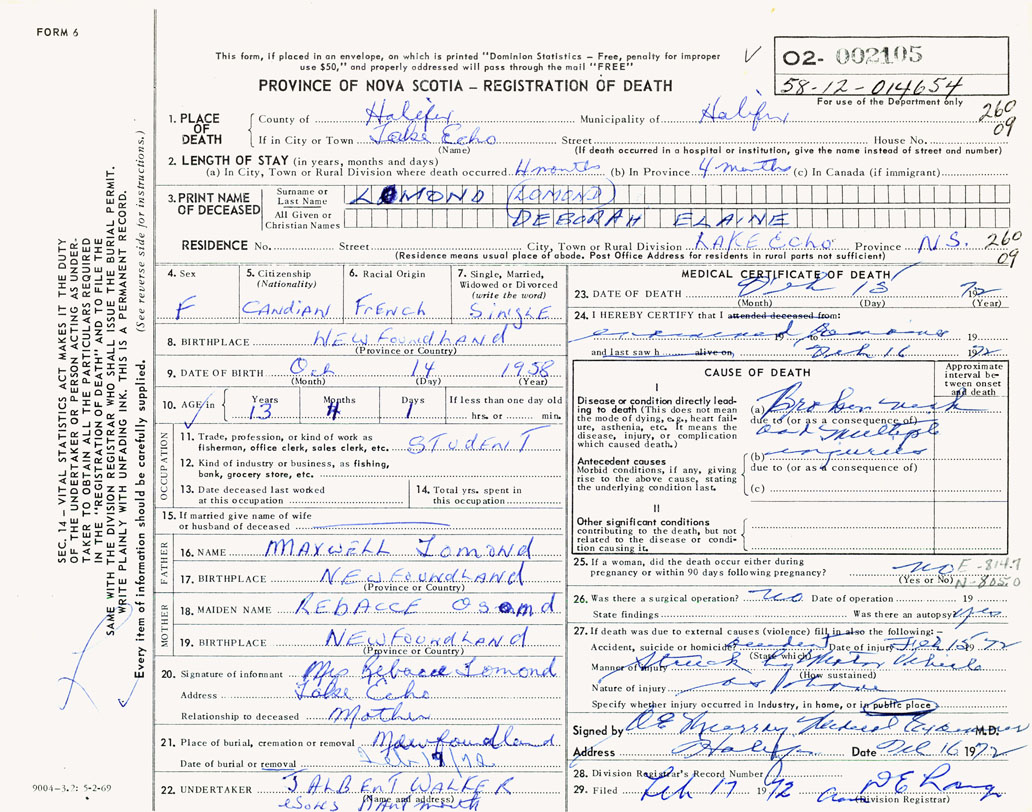 FORM 6
This form, if placed in an envelope, on which is printed "Dominion Statistics – Free, penalty for improper
use $50," and properly addressed will pass through the mail "FREE"
PROVINCE OF NOVA SCOTIA – REGISTRATION OF DEATH
02- 002105
58-12-014654
For use of the Department only
260
09
1. PLACE OF DEATH
County of Halifax Municipality of Halifax
If in City or Town Lake Echo Street House No.
(Name) (If death occurred in a hospital or institution, give the name instead of street and number)
2. LENGTH OF STAY (in years, months and days)
(a) In City, Town or Rural Division where death occurred 4 months (b) In Province 4 months (c) In Canada (if immigrant)
3. PRINT NAME OF DECEASED
Surname or Last Name LOMOND LOMOND
All Given or Christian Names DEBORAH ELAINE
RESIDENCE No. Street City, Town or Rural Division LAKE Echo Province N.S. 260
09
(Residence means usual place of abode. Post Office Address for residents in rural parts not sufficient)
4. Sex
F
5. Citizenship (Nationality)
CANDIAN
6. Racial Origin
French
7. Single, Married, Widowed or Divorced (write the word)
SINGLE
8. BIRTHPLACE NEWFoundLand
(Province or Country)
9. DATE OF BIRTH Oct 14 1958
(Month) (Day) (Year)
10. AGE in Years Months Days If less than one day old
13 4 1 hrs. or min.
OCCUPATION
11. Trade, profession, or kind of work as
fisherman, office clerk, sales clerk, etc. STUDENT
12. Kind of industry or business, as fishing,
bank, grocery store, etc.
13. Date deceased last worked
at this occupation
14. Total yrs. spent in
this occupation
15. If married give name of wife
or husband of deceased
FATHER
16. NAME MAXWELL Lomond
17. BIRTHPLACE NEWFoundLand
(Province or Country)
MOTHER
18. MAIDEN NAME REBACCE
19. BIRTHPLACE NEWFoundLand
(Province or Country)
20. Signature of informant Mrs Rebacce Lomond
Address Lake Echo
Relationship to deceased Mother
21. Place of burial, cremation or removal Newfoundland
Date of burial or removal
22. UNDERTAKER J ALBENT WALKER
(Name and address)
MEDICAL CERTIFICATE OF DEATH
23. DATE OF DEATH Feb 15 1972
(Month) (Day) (Year)
24. I HEREBY CERTIFY that I attended deceased from:
examined remains 19 to 19
and last saw h alive on, Feb 16 1972
CAUSE OF DEATH
Approximate interval between onset and death
I
Disease or condition directly leading
to death (This does not mean
the mode of dying, e.g., heart failure,
asthenia, etc. It means the
disease, injury, or complication
which caused death.)
(a) Broken neck
due to (or as a consequence of)
and multiple
(b) injuries
due to (or as a consequence of)
(c)
Antecedent causes
Morbid conditions, if any, giving
rise to the above cause, stating
the underlying condition last.
II
Other significant conditions
contributing to the death, but not
related to the disease or condition
causing it.
25. If a woman, did the death occur either during
pregnancy or within 90 days following pregnancy? no
(Yes or No)
E-8147
N-8050
26. Was there a surgical operation? no Date of operation 19
State findings Was there an autopsy? yes
27. If death was due to external causes (violence) fill in also the following:–
Accident, suicide or homicide? accident Date of injury Feb 15 1972
(State which)
Manner of injury Struck by Motor Vehicle
(How sustained)
Nature of injury as above
Specify whether injury occurred in Industry, in home, or in public place
Signed by Murray Medical Examiner M.D.
Address Halifax Date Feb 16 1972
28. Division Registrar's Record Number
29. Filed Feb 17 1972
(Division Registrar)
SEC. 14 – VITAL STATISTICS ACT MAKES IT THE DUTY
OF THE UNDERTAKER OR PERSON ACTING AS UNDERTAKER
TO OBTAIN ALL THE PARTICULARS REQUIRED
IN THE "REGISTRATION OF DEATH" AND TO FILE THE
SAME WITH THE DIVISION REGISTRAR WHO SHALL ISSUE THE BURIAL PERMIT.
WRITE PLAINLY WITH UNFADING INK. THIS IS A PERMANENT RECORD.
Every item of information should be carefully supplied. (See reverse side for instructions.)
9004-3.2: 5-2-69